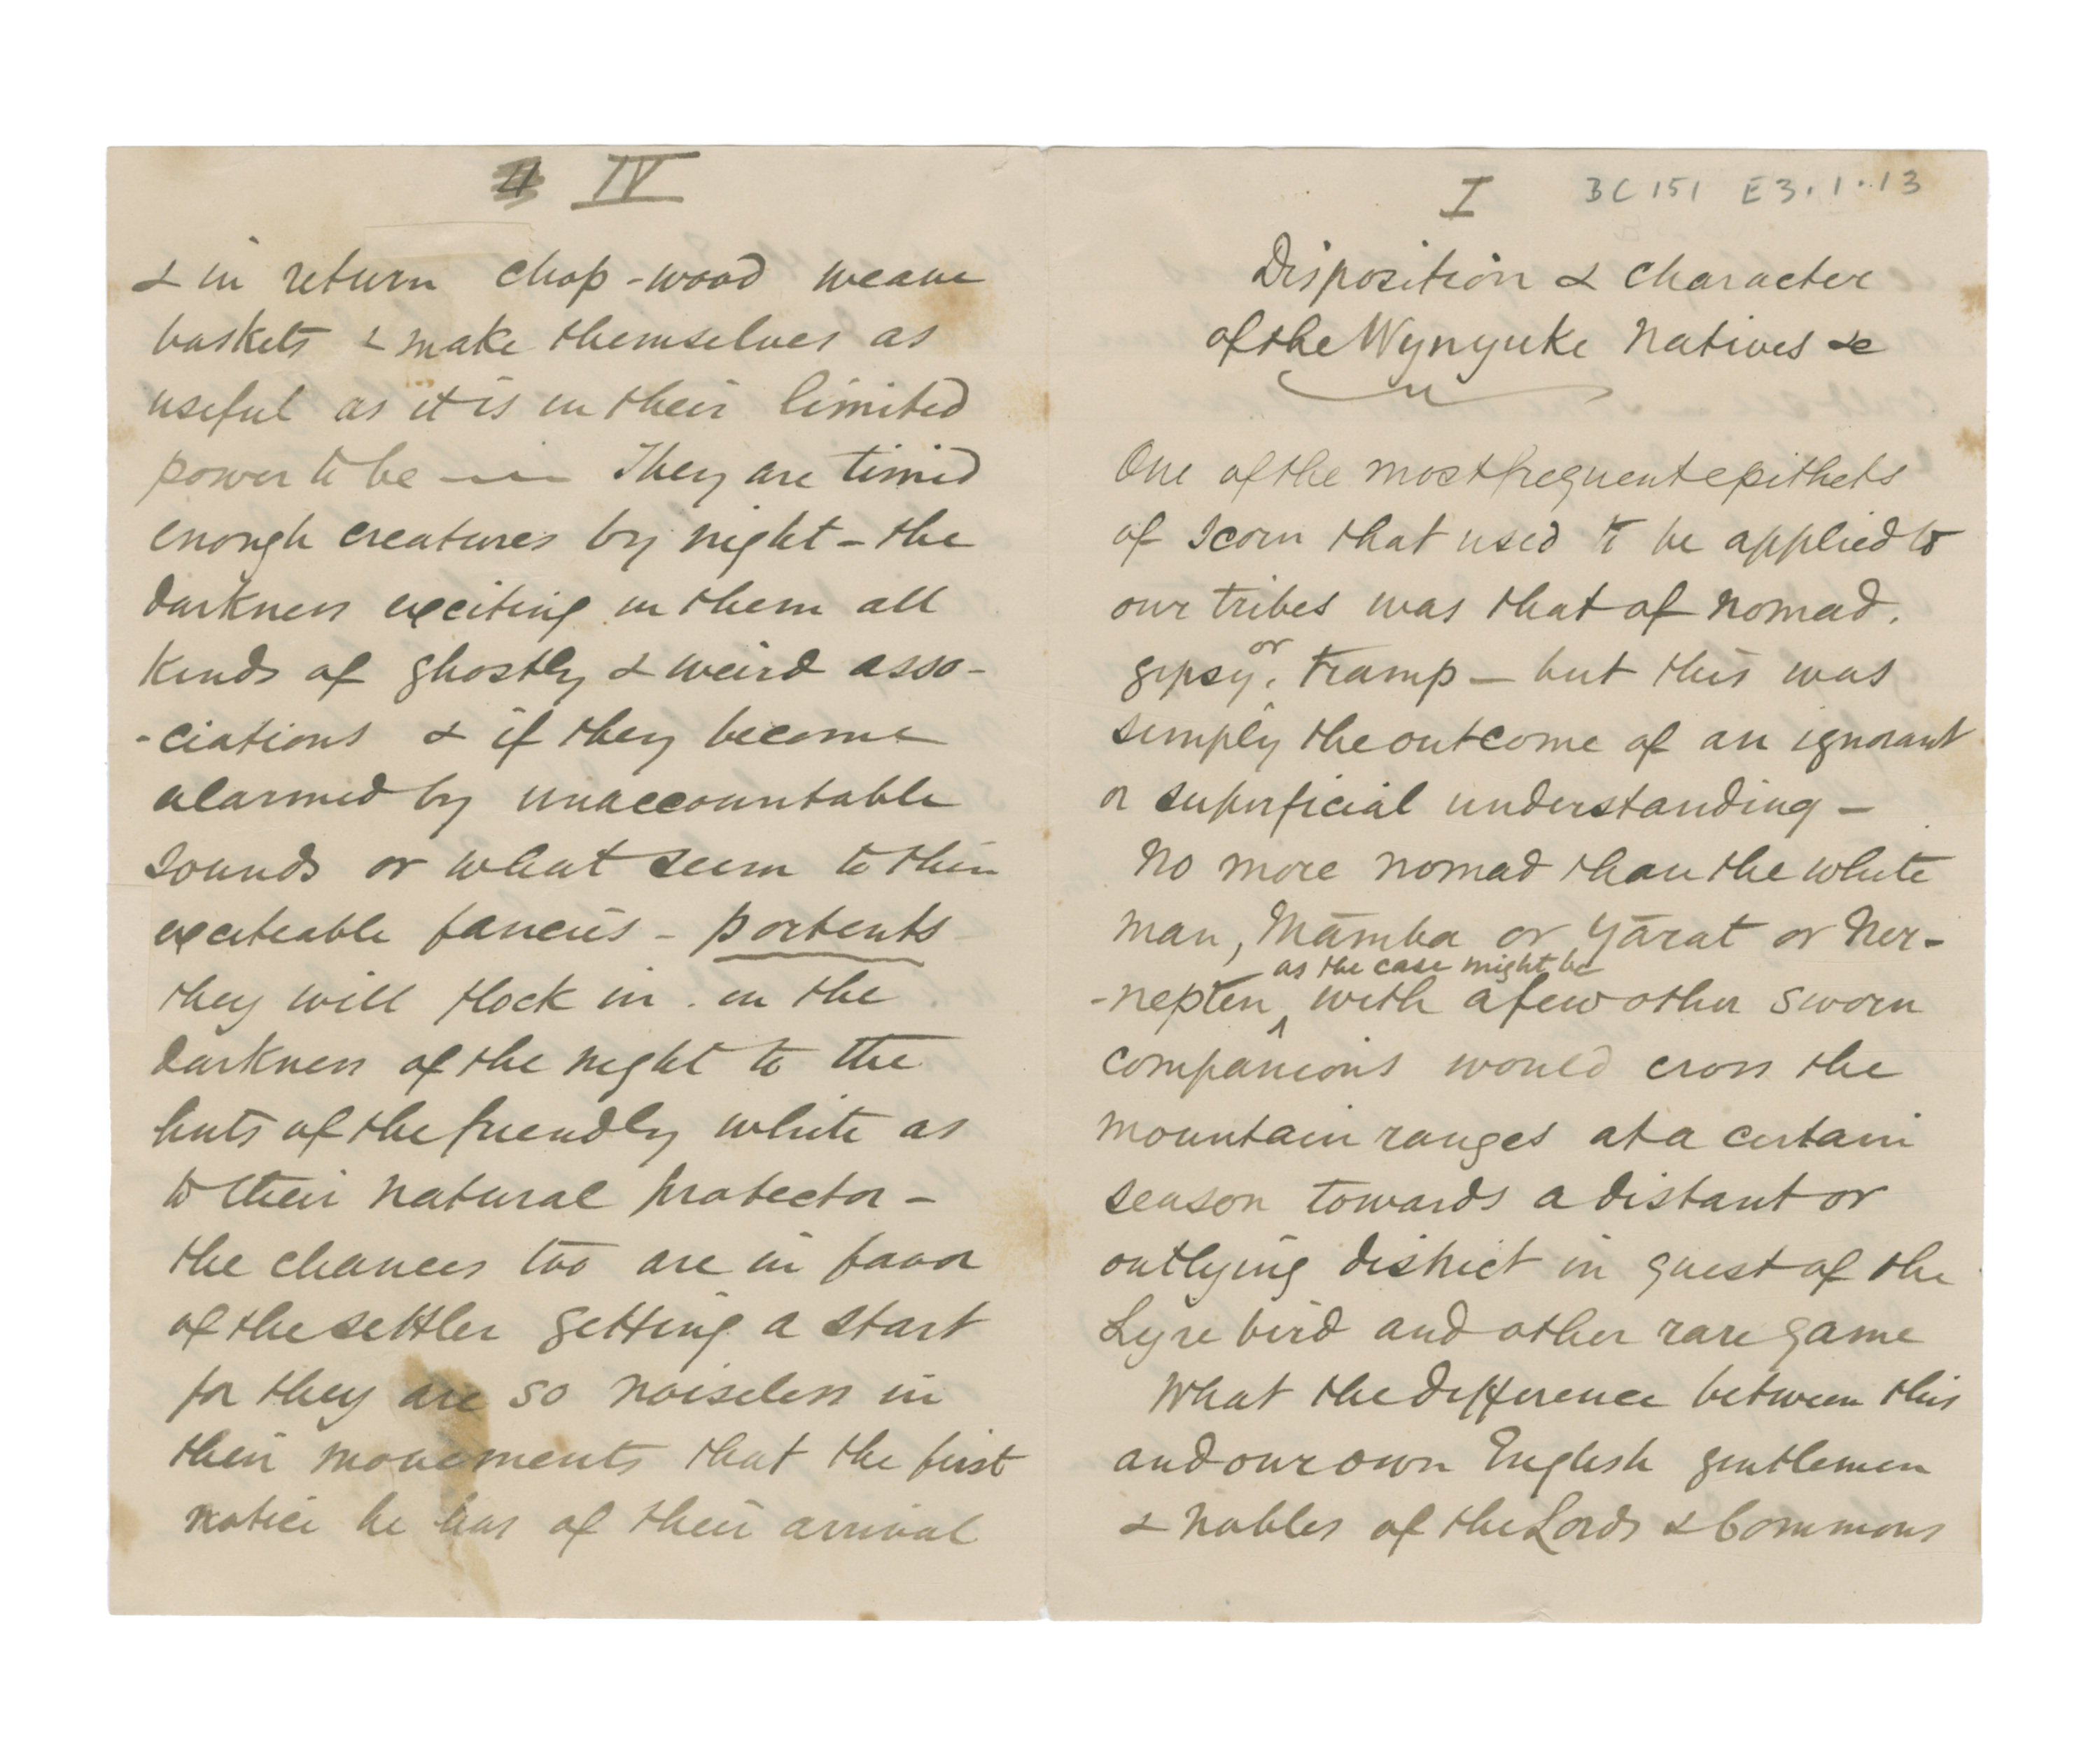 IV
& in return chop-wood weave
baskets & make themselves as
useful as it is in their limited
power to be — They are timid
enough creatures by night – the
darkness exciting in them all
kinds of ghostly & weird asso-
-ciations & if they become
alarmed by unaccountable
sounds or what seem to their
exciteable fancies – portents
they will flock in . in the
darkness of the night to the
huts of the friendly white as
to their natural protector –
the chances too are in favor
of the settler getting a start
for they are so noiseless in
their movements that the first
notice he has of their arrival
I BC 151 E3.1.13
Disposition & Character
of the Wynyuke Natives &c
One of the most frequent epithets
of scorn that used to be applied to
our tribes was that of nomad.
or
gipsy, tramp – but this was
simply the outcome of an ignorant
or superficial understanding –
No more nomad than the white
man, Māmba or Yārat or Ner-
as the case might be
-nepten ^ with a few other sworn
companions would cross the
mountain ranges at a certain
season towards a distant or
outlying district in quest of the
Lyre bird and other rare game
What the difference between this
and our own English gentlemen
& nobles of the Lords & Commons